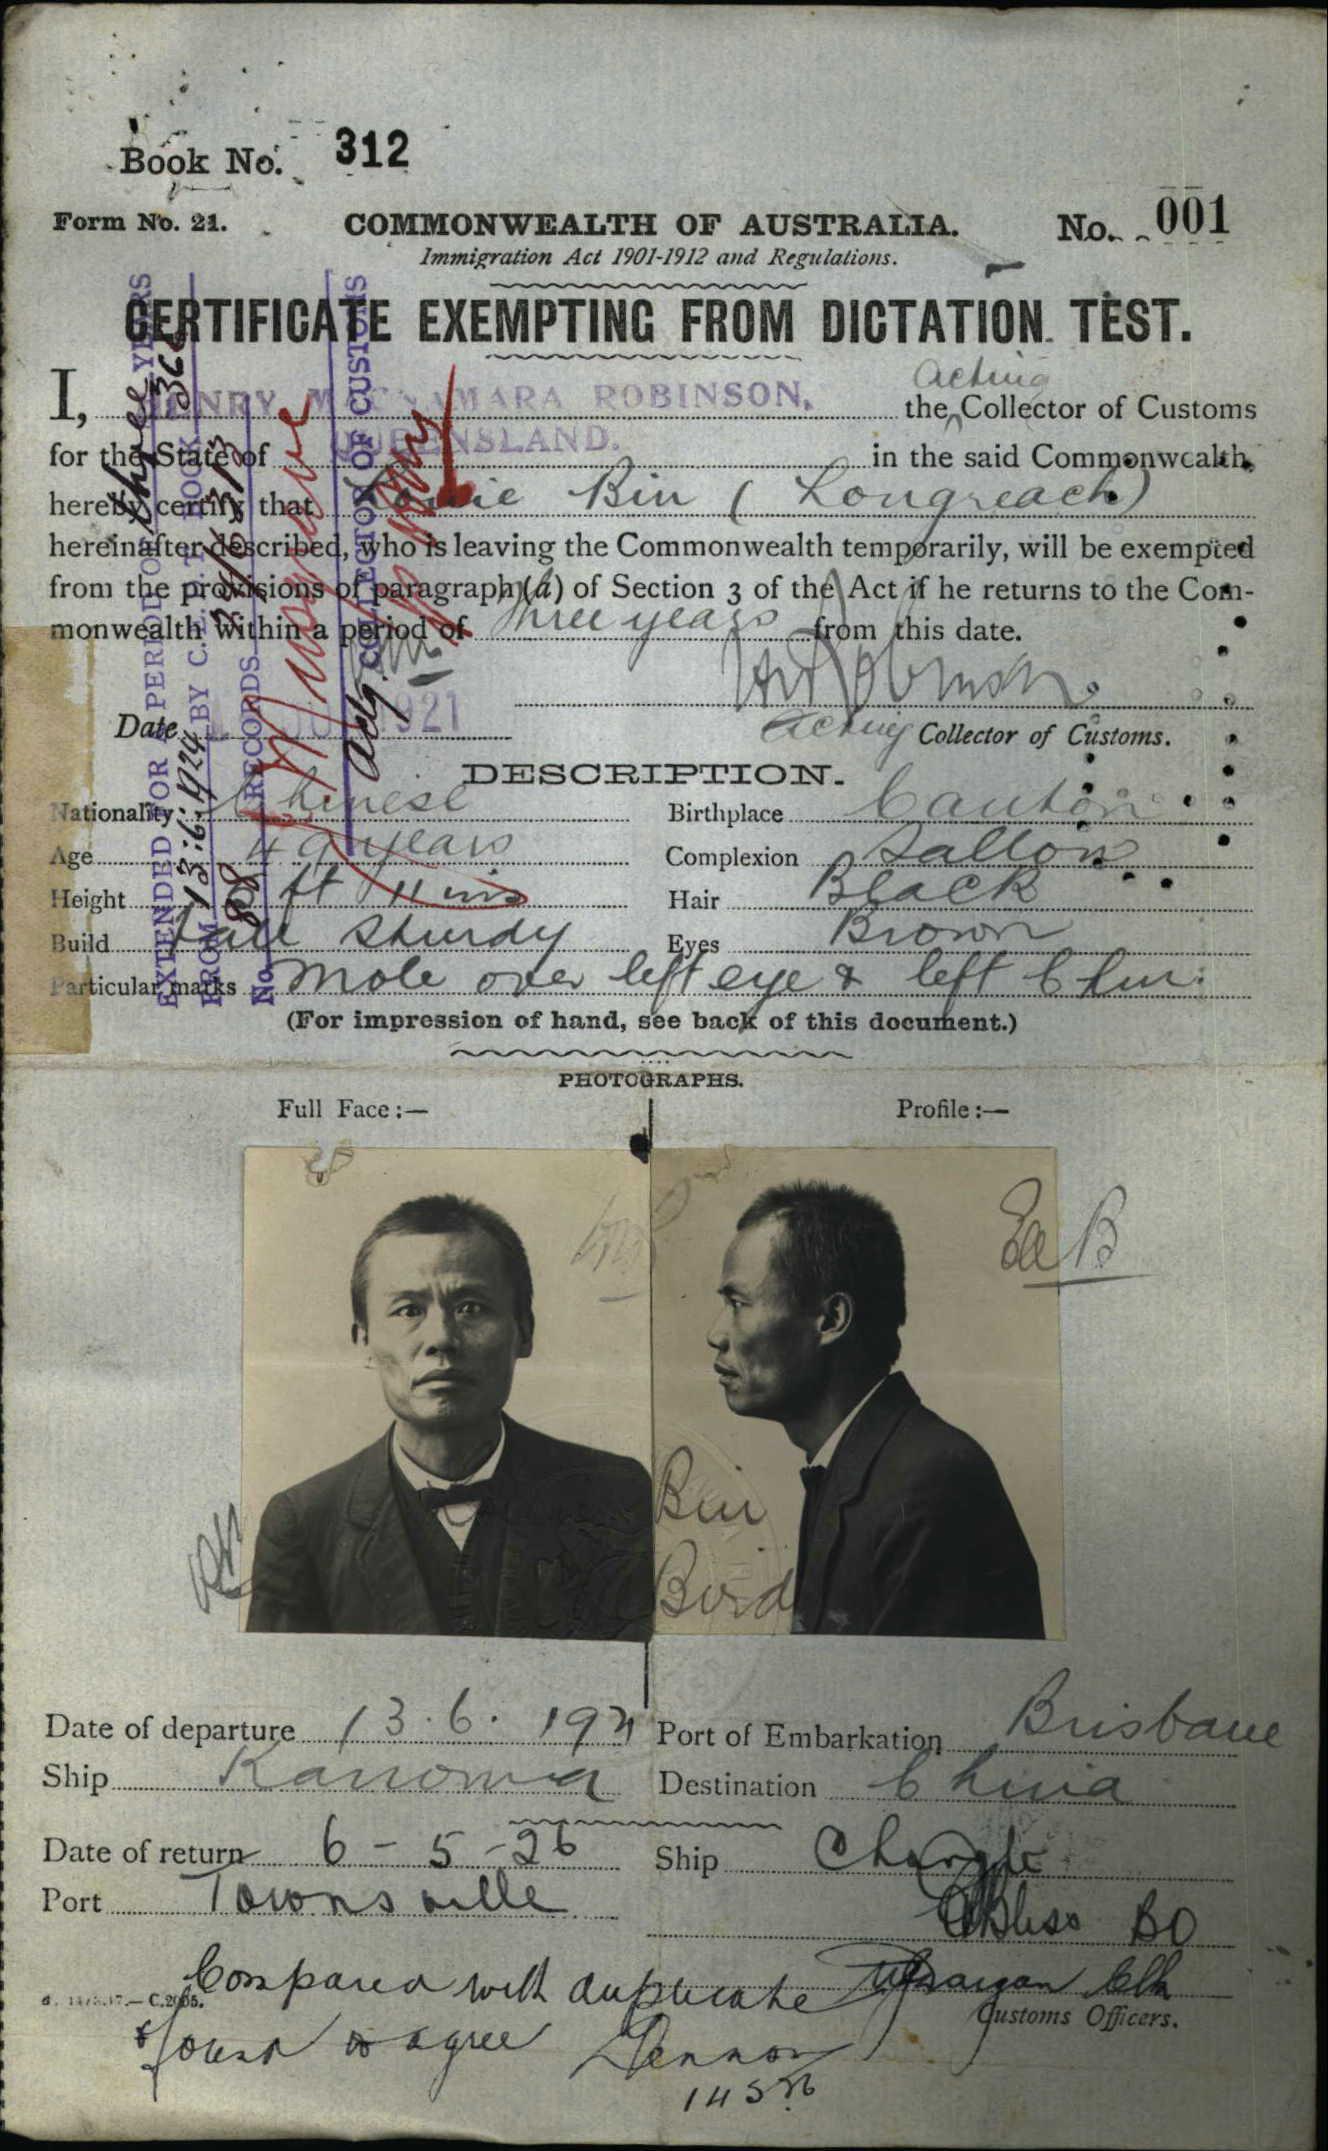 Book No. 312
Form No. 21. COMMONWEALTH OF AUSTRALIA. No. 001
Immigration Act 1901-1912 and Regulations.
CERTIFICATE EXEMPTING FROM DICTATION TEST.
acting
I, HENRY MACNAMARA ROBINSON, the Collector of Customs
QUEENSLAND.
for the State of in the said Commonwealth,
hereby certify that Louie Bin (Longreach)
hereinafter described, who is leaving the Commonwealth temporarily, will be exempted
from the provisions of paragraph (a) of Section 3 of the Act if he returns to the Com-
monwealth within a period of three years from this date.
Date 1921 acting Collector of Customs.
EXTENDED FOR A PERIOD OF three YEARS
FROM 13.6.1924 BY C.E.D.T. BOOK 366
No. 88 RECORDS
actg. COLLECTOR OF CUSTOMS
DESCRIPTION.
Nationality Chinese Birthplace Canton
Age 49 years Complexion Sallow
Height 5 ft 11 ins Hair Black
Build tall sturdy Eyes Brown
Particular marks Mole over left eye & left Chin.
(For impression of hand, see back of this document.)
PHOTOGRAPHS.
Full Face:— Profile:—
Bin
Bird
Date of departure 13.6.1921 Port of Embarkation Brisbane
Ship Kanowna Destination China
Date of return 6-5-26 Ship
Port Townsville
Bliss BO
Compared with duplicate
Customs Officers.
& found to agree
14 5 26